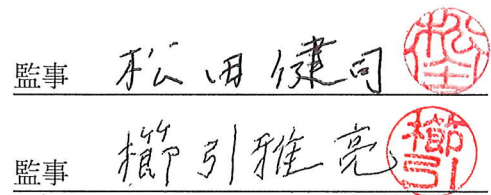 監事 松田健司
監事 櫛引雅亮 櫛引